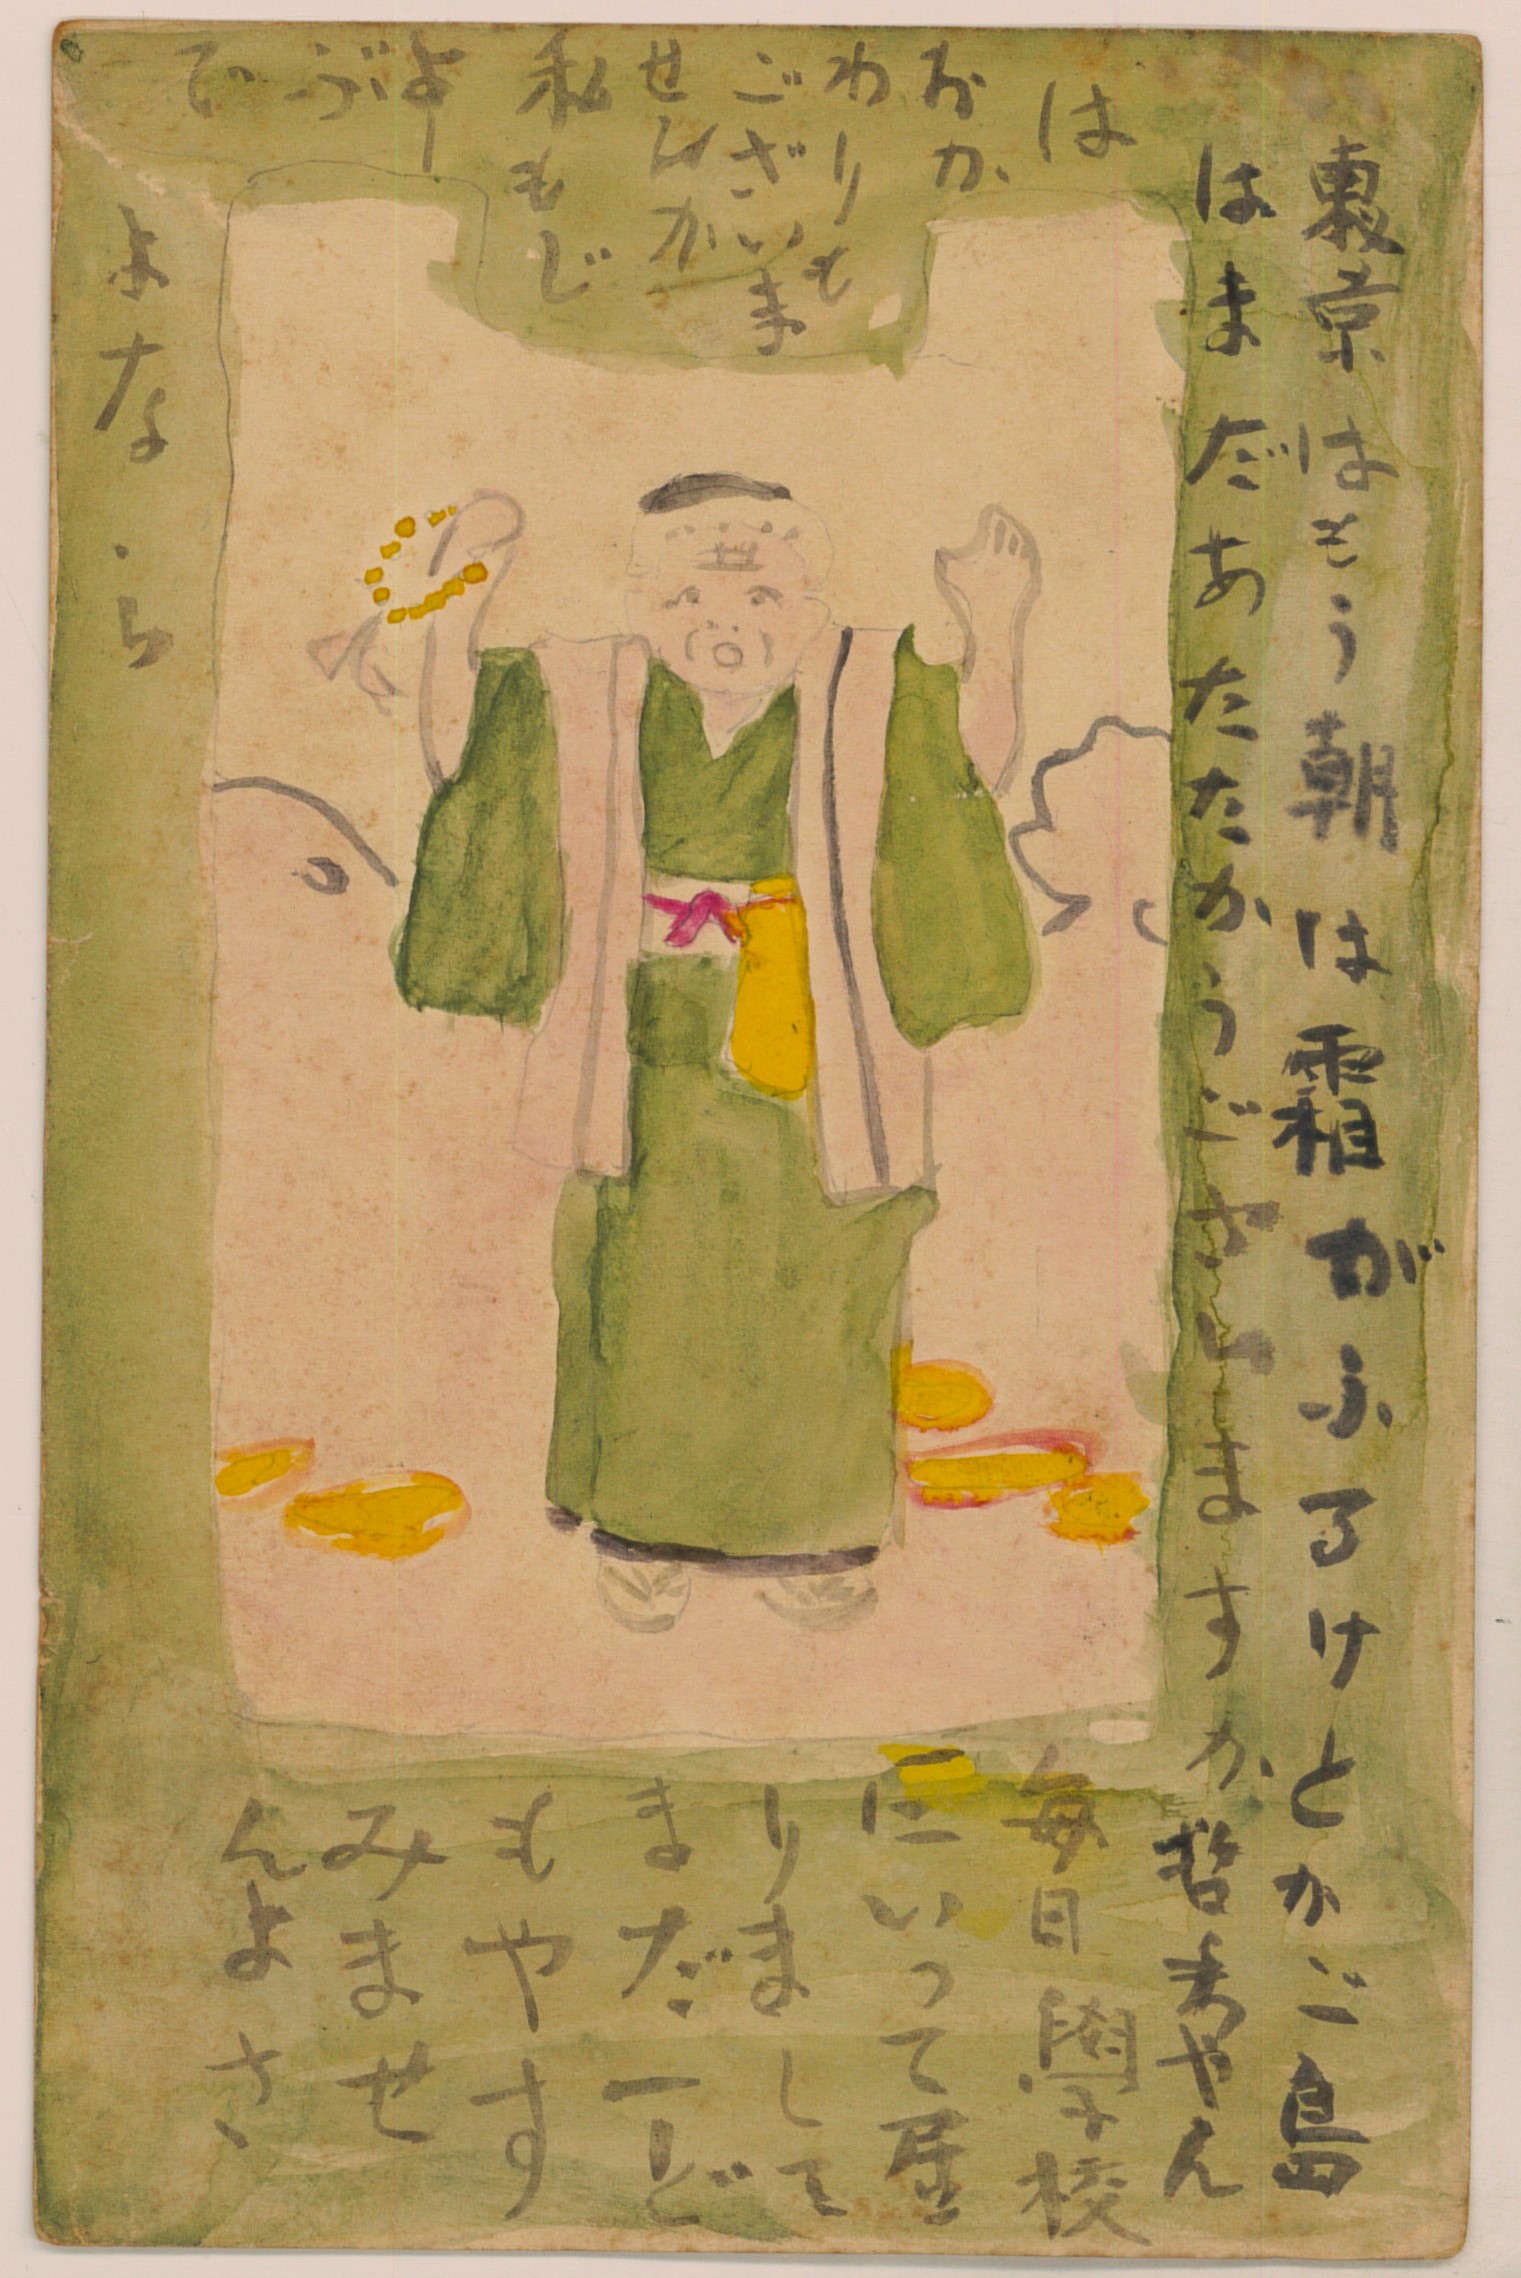 東京はもう朝は霜がふるけとかご島
はまだあたたかうございますか哲ちやん
は
おか
わりも
ございま
せんか
私もじ
よー
ぶ
で
毎日學校
にいって居
りまして
まだ一ど
もやす
みませ
んよさ
よなら